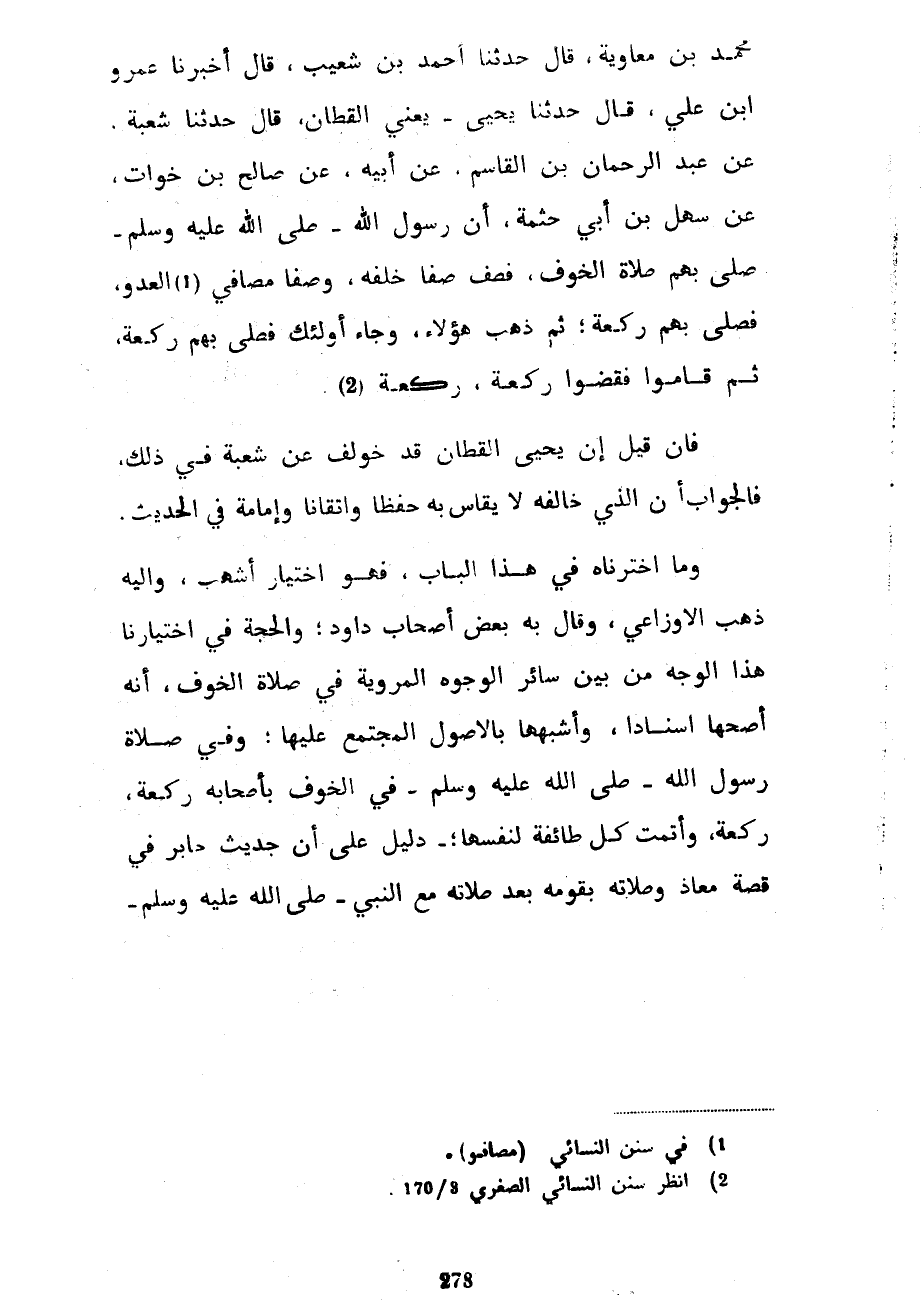 محمد بن معاوية، قال حدثنا أحمد بن شعيب، قال أخبرنا عمرو
ابن علي، قال حدثنا يحيى - يعني القطان، قال حدثنا شعبة.
عن عبد الرحمان بن القاسم. عن أبيه، عن صالح بن خوات،
عن سهل بن أبي حثمة، أن رسول الله - صلى الله عليه وسلم -
صلى بهم صلاة الخوف، فصف صفا خلفه، وصفا مصافي (1) العدو،
فصلى بهم ركعة؛ ثم ذهب هؤلاء، وجاء أولئك فصلى بهم ركعة،
ثم قاموا فقضوا ركعة، ركعة (2).
فان قيل إن يحيى القطان قد خولف عن شعبة في ذلك،
فالجواب أ ن الذي خالفه لا يقاس به حفظا واتقانا وإمامة في الحديث.
وما اخترناه في هذا الباب، فهو اختيار أشهب، واليه
ذهب الاوزاعي، وقال به بعض أصحاب داود؛ والحجة في اختيارنا
هذا الوجه من بين سائر الوجوه المروية في صلاة الخوف، أنه
أصحها اسنادا، وأشبهها بالاصول المجتمع عليها؛ وفي صلاة
رسول الله - صلى الله عليه وسلم - في الخوف بأصحابه ركعة،
ركعة، وأتمت كل طائفة لنفسها؛ - دليل على أن حديث جابر في
قصة معاذ وصلاته بقومه بعد صلاته مع النبي - صلى الله عليه وسلم -
1) في سنن النسائي (مصافو).
2) انظر سنن النسائي الصغرى 170/3.
278